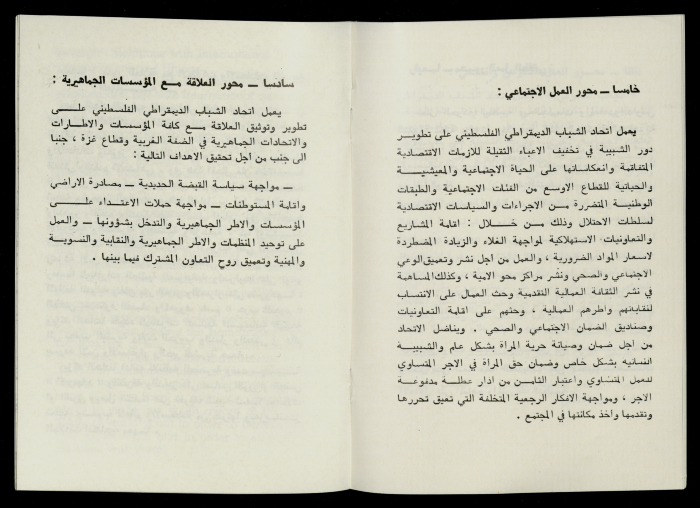 خامسا ـ محور العمل الاجتماعي :
يعمل اتحاد الشباب الديمقراطي الفلسطيني على تطوير
دور الشبيبة في تخفيف الاعباء الثقيلة للازمات الاقتصادية
المتفاقمة وانعكاساتها على الحياة الاجتماعية والمعيشيــــة
والحياتية للقطاع الاوسع من الفئات الاجتماعية والطبقات
الوطنية المتضررة مــن الاجراءات والسياسات الاقتصادية
لسلطات الاحتلال وذلك مــن خــلال : اقامة المشاريع
والتعاونيات الاستهلاكية لمواجهة الغلاء والزيادة المضطردة
لاسعار المواد الضرورية ، والعمل من اجل نشر وتعميق الوعي
الاجتماعي والصحي ونشر مراكز محو الامية ، وكذلك المساهمة
في نشر الثقافة العمالية التقدمية وحث العمال على الانتساب
لنقاباتهم واطرهم العمالية ، وحثهم على اقامة التعاونيات
وصناديق الضمان الاجتماعي والصحي . ويناضل الاتحاد
من اجل ضمان وصيانة حرية المراة بشكل عام والشبيبــة
النسائيه بشكل خاص وضمان حق المراة في الاجر المتساوي
للعمل المتساوي واعتبار الثامــن من اذار عطلــة مدفوعــة
الاجر ، ومواجهة الافكار الرجعية المتخلفة التي تعيق تحررها
وتقدمها واخذ مكانتها في المجتمع .
سادسا ـ محور العلاقة مــع المؤسسات الجماهيرية :
يعمل اتحاد الشباب الديمقراطي الفلسطيني علــى
تطوير وتوثيق العلاقة مــع كافة المؤسسات والاطارات
والاتحادات الجماهيرية في الضفة الغربية وقطاع غزة ، جنبا
الى جنب من اجل تحقيق الاهداف التالية :
ـ مواجهة سياسة القبضة الحديدية ـ مصادرة الاراضي
واقامة المستوطنات ـ مواجهة حملات الاعتــداء علــى
المؤسسات والاطر الجماهيرية والتدخل بشؤونها ـ والعمل
على توحيد المنظمات والاطر الجماهيرية والنقابية والنسويــة
والمهنية وتعميق روح التعاون المشترك فيما بينها .